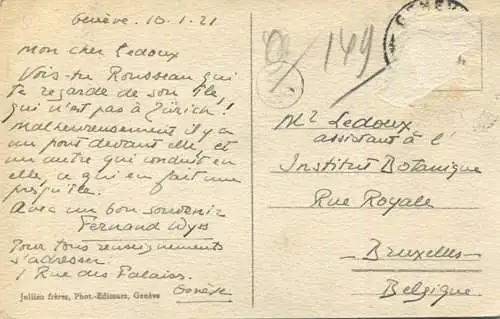 Genève. 10.1.21
Mon cher Ledoux
Vois-tu Rousseau qui
te regarde de son île,
qui n'est pas à Zürich!!
Malheureusement il y a
un pont devant elle, et
un autre qui conduit en
elle, ce qui en fait une
presqu'île.
Avec un bon souvenir
Fernand Wyss
Pour tous renseignements
s'adresser
1 Rue des Palais.
Genève
Jullien frères, Phot.-Editeurs, Genève
149
Mr Ledoux
assistant à l'
Institut Botanique
Rue Royale
Bruxelles
Belgique